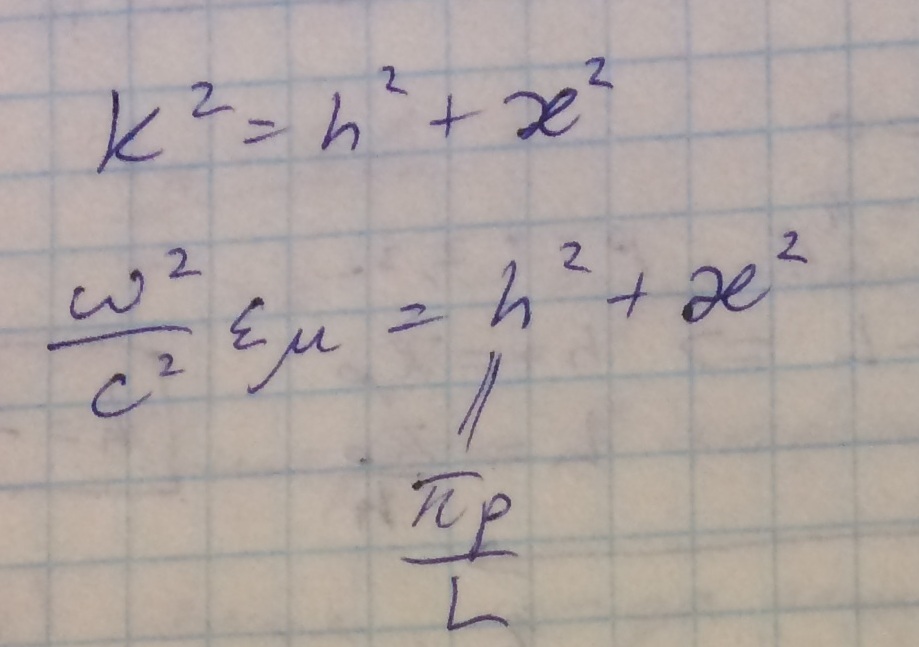 k² = h² + æ²
ω²/c² εμ = h² + æ²
||
πp/L